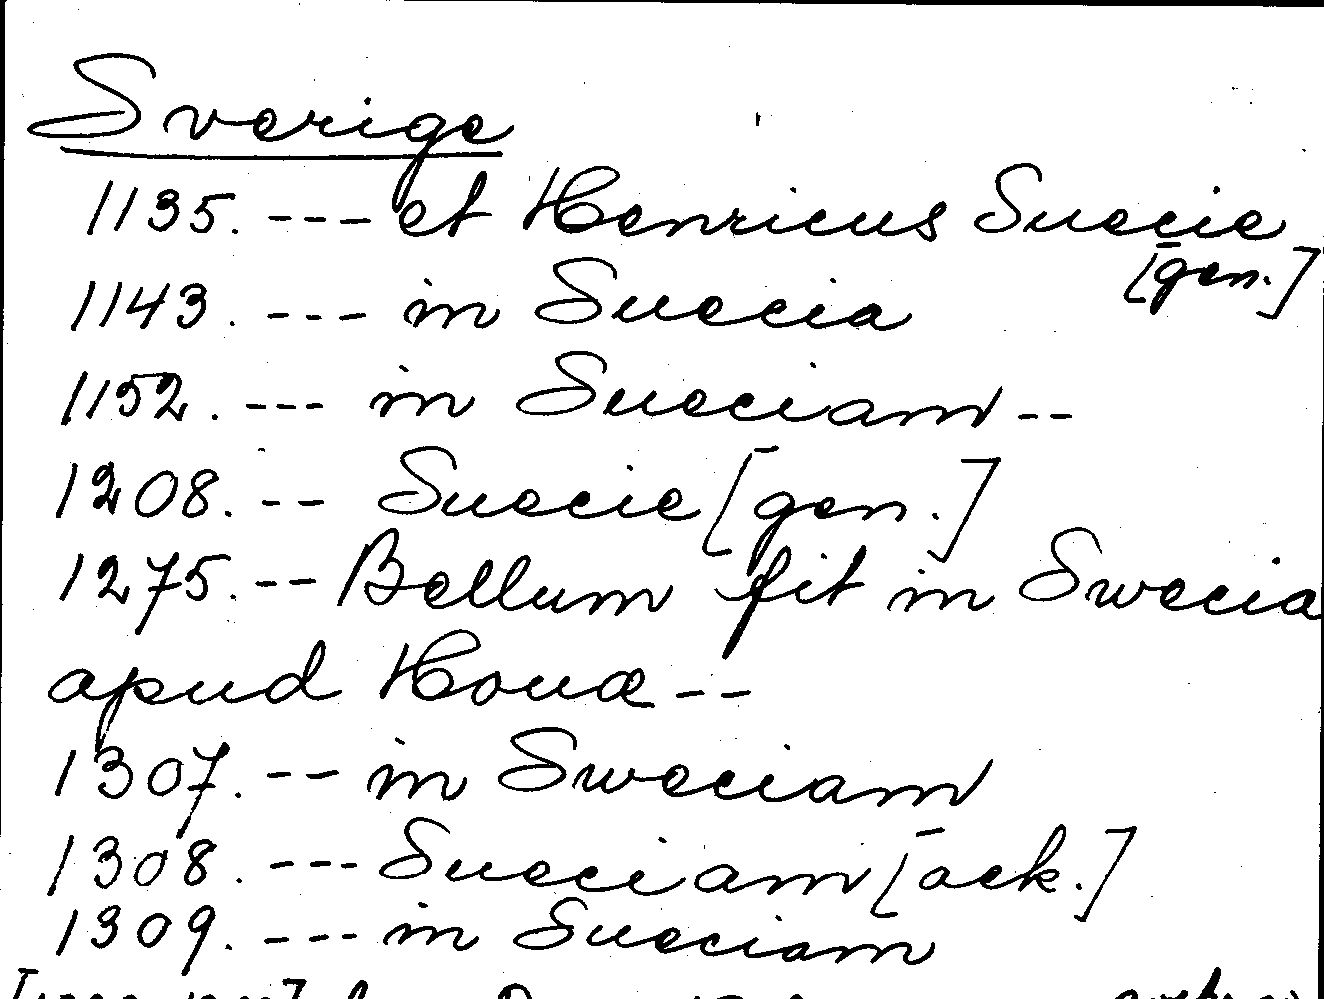 Sverige
1135. --- et Henricus Suecie
[gen.]
1143. --- in Suecia
1152. --- in Sueciam --
1208. -- Suecie [gen.]
1275. -- Bellum fit in Swecia
apud Houæ --
1307. -- in Sweciam
1308. --- Sueciam [ack.]
1309. --- in Sueciam